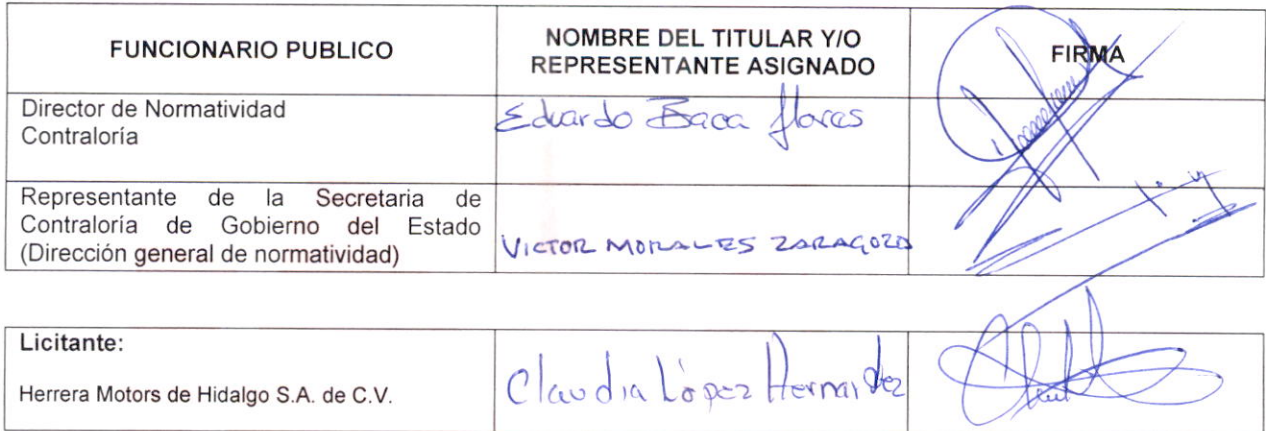 FUNCIONARIO PUBLICO
NOMBRE DEL TITULAR Y/O
REPRESENTANTE ASIGNADO
FIRMA
Director de Normatividad
Contraloría
Eduardo Baca flores
Representante de la Secretaria de
Contraloría de Gobierno del Estado
(Dirección general de normatividad)
VICTOR MORALES ZARAGOZA
Licitante:
Herrera Motors de Hidalgo S.A. de C.V.
Claudia López Hernandez